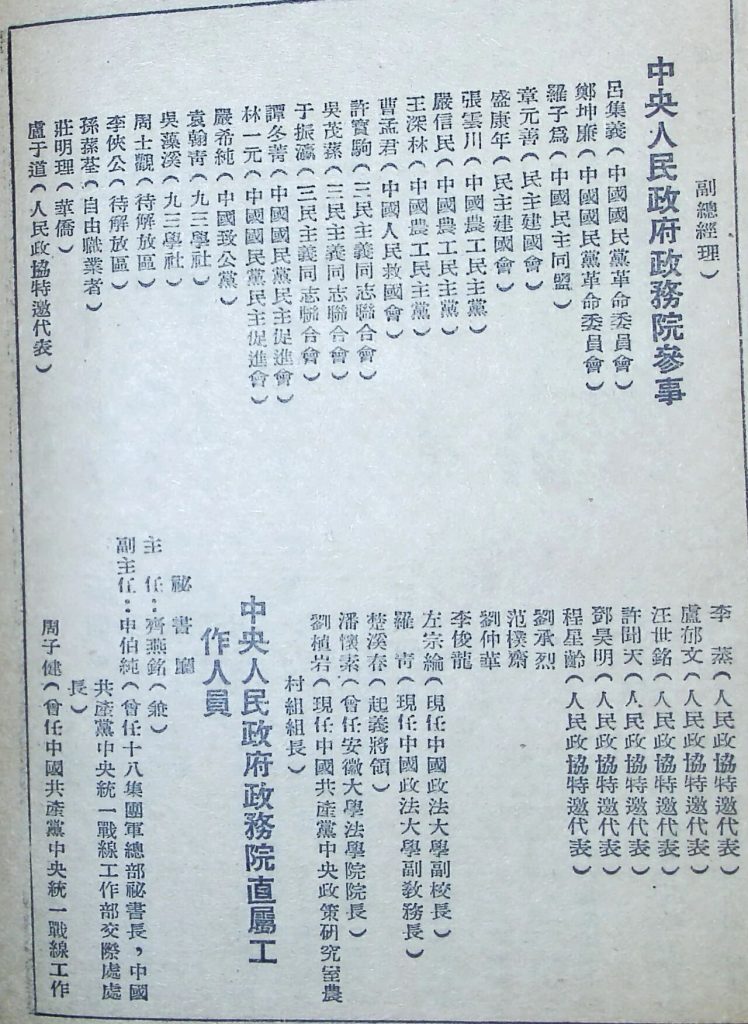 副總經理）
中央人民政府政務院參事
呂集義（中國國民黨革命委員會）
鄭坤廉（中國國民黨革命委員會）
羅子爲（中國民主同盟）
章元善（民主建國會）
盛康年（民主建國會）
張雲川（中國農工民主黨）
嚴信民（中國農工民主黨）
王深林（中國農工民主黨）
曹孟君（中國人民救國會）
許寶駒（三民主義同志聯合會）
吳茂蓀（三民主義同志聯合會）
于振瀛（三民主義同志聯合會）
譚冬菁（中國國民黨民主促進會）
林一元（中國國民黨民主促進會）
嚴希純（中國致公黨）
袁翰青（九三學社）
吳藻溪（九三學社）
周士觀（待解放區）
李俠公（待解放區）
孫蓀荃（自由職業者）
莊明理（華僑）
盧于道（人民政協特邀代表）
李　蒸（人民政協特邀代表）
盧郁文（人民政協特邀代表）
汪世銘（人民政協特邀代表）
許聞天（人民政協特邀代表）
鄧昊明（人民政協特邀代表）
程星齡（人民政協特邀代表）
劉承烈
范樸齋
劉仲華
李俊龍
左宗綸（現任中國政法大學副校長）
羅　青（現任中國政法大學副教務長）
楚溪春（起義將領）
潘懷素（曾任安徽大學法學院院長）
劉植岩（現任中國共產黨中央政策研究室農
村組組長）
中央人民政府政務院直屬工
作人員
祕書廳
主　任：齊燕銘（兼）
副主任：申伯純（曾任十八集團軍總部祕書長，中國
共產黨中央統一戰線工作部交際處處
長）
周子健（曾任中國共產黨中央統一戰線工作